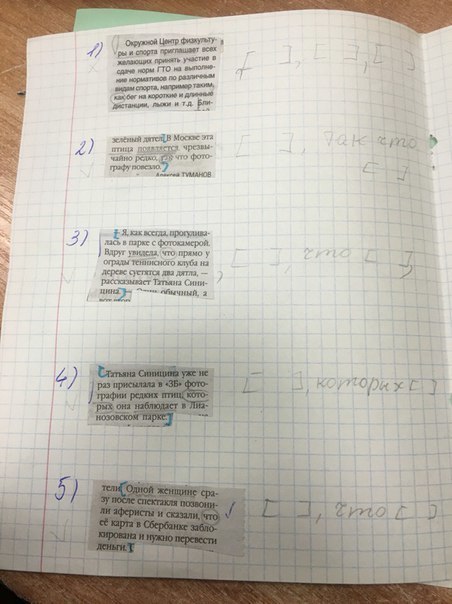 1) Окружной Центр физкульту-
ры и спорта приглашает всех
желающих принять участие в
сдаче норм ГТО на выполне-
ние нормативов по различным
видам спорта, например таким,
как бег на короткие и длинные
дистанции, лыжи и т.д. Бли-
[ ], [ ], [ ]
2) зелёный дятел. В Москве эта
птица появляется чрезвы-
чайно редко, так что фото-
графу повезло.
Алексей ТУМАНОВ
[ ], так что
[ ]
3) Я, как всегда, прогулива-
лась в парке с фотокамерой.
Вдруг увидела, что прямо у
ограды теннисного клуба на
дереве суетятся два дятла, —
рассказывает Татьяна Сини-
цина. — Один обычный, а
вот второй
[ ] что [ ],
4) Татьяна Синицина уже не
раз присылала в «ЗБ» фото-
графии редких птиц, кото-
рых она наблюдает в Лиа-
нозовском парке.
[ ], которых [ ]
5) тели. Одной женщине сра-
зу после спектакля позвони-
ли аферисты и сказали, что
её карта в Сбербанке забло-
кирована и нужно перевести
деньги.
[ ], что [ ]